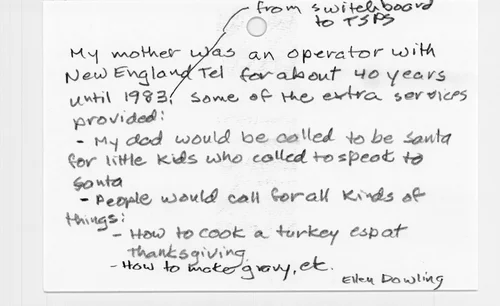 from switchboard
to TSPS
My mother was an operator with
New England Tel for about 40 years
until 1983. Some of the extra services
provided:
- My dad would be called to be santa
for little kids who called to speak to
santa
- People would call for all kinds of
things:
- How to cook a turkey espat
thanksgiving
- How to make gravy, etc.
Ellen Dowling